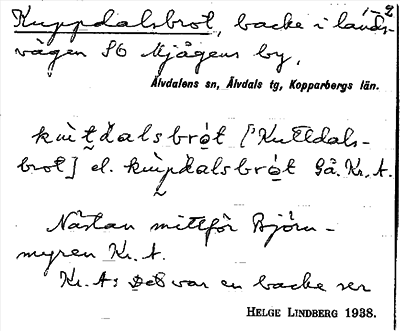 2
Kuppdalsbrot, backe i lands-
vägen SO Mjågens by.
Älvdalens sn, Älvdals tg, Kopparbergs län.
kùtdalsbrọt [Kuttdals-
brot] el. kùpdalsbrọt Gå. Kr. A.
Nästan mittför Björn-
myren Kr. A.
Kr. A: Det var en backe ser
HELGE LINDBERG 1938.